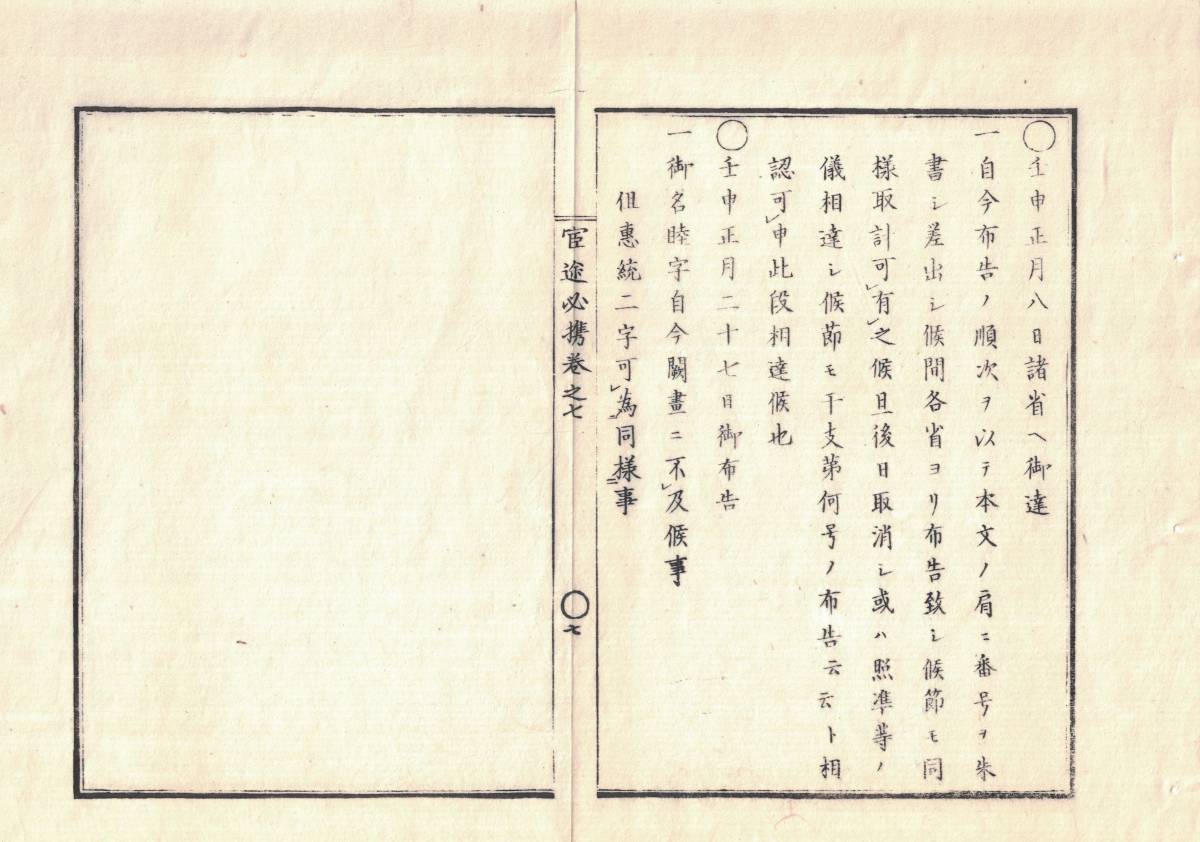 ◯壬申正月八日諸省ヘ御達
一自今布告ノ順次ヲ以テ本文ノ肩ニ番号ヲ朱
書シ差出シ候間各省ヨリ布告致シ候節モ同
様取計可レ有レ之候且後日取消シ或ハ照準等ノ
儀相達シ候節モ干支第何号ノ布告云云ト相
認可レ申此段相達候也
◯壬申正月二十七日御布告
一御名睦字自今闕畫ニ不レ及候事
但惠統二字可レ為二同様一事
宦途必携巻之七
◯七